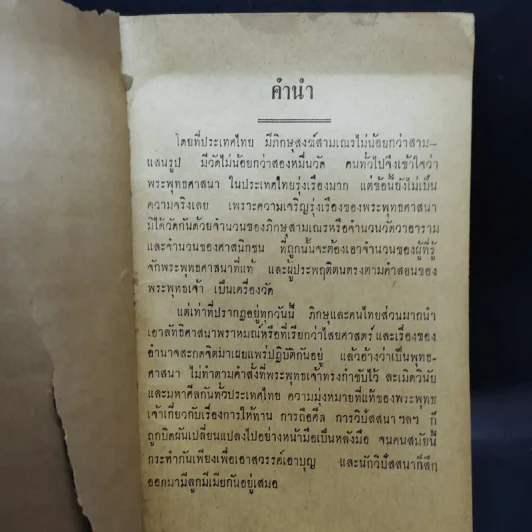 คำนำ
โดยที่ประเทศไทย มีภิกษุสงฆ์สามเณรไม่น้อยกว่าสาม–
แสนรูป มีวัดไม่น้อยกว่าสองหมื่นวัด คนทั่วไปจึงเข้าใจว่า
พระพุทธศาสนา ในประเทศไทยรุ่งเรืองมาก แต่ข้อนี้ยังไม่เป็น
ความจริงเลย เพราะความเจริญรุ่งเรืองของพระพุทธศาสนา
มิได้วัดกันด้วยจำนวนของภิกษุสามเณรหรือจำนวนวัดวาอาราม
และจำนวนของศาสนิกชน ที่ถูกนั้นจะต้องเอาจำนวนของผู้ที่รู้
จักพระพุทธศาสนาที่แท้ และผู้ประพฤติตนตรงตามคำสอนของ
พระพุทธเจ้า เป็นเครื่องวัด
แต่เท่าที่ปรากฏอยู่ทุกวันนี้ ภิกษุและคนไทยส่วนมากนำ
เอาลัทธิศาสนาพราหมณ์หรือที่เรียกว่าไสยศาสตร์ และเรื่องของ
อำนาจสะกดจิตมาเผยแพร่ปฏิบัติกันอยู่ แล้วอ้างว่าเป็นพุทธ-
ศาสนา ไม่ทำตามคำสั่งที่พระพุทธเจ้าทรงกำชับไว้ ละเมิดวินัย
และมหาศีลกันทั่วประเทศไทย ความมุ่งหมายที่แท้ของพระพุทธ
เจ้าเกี่ยวกับเรื่องการให้ทาน การถือศีล การวิปัสสนา ฯลฯ ก็
ถูกบิดผันเปลี่ยนแปลงไปอย่างหน้ามือเป็นหลังมือ จนคนสมัยนี้
กระทำกันเพียงเพื่อเอาสวรรค์เอาบุญ และนักวิปัสสนาก็สึก
ออกมามีลูกมีเมียกันอยู่เสมอ